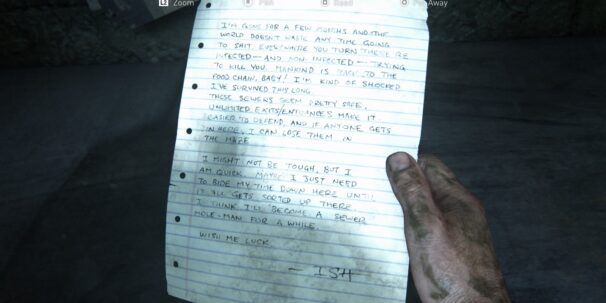 Zoom Pan Read Put Away
I'M GONE FOR A FEW MONTHS AND THE
WORLD DOESN'T WASTE ANY TIME GOING
TO SHIT. EVERYWHERE YOU TURN THERE'RE
INFECTED — AND NON-INFECTED — TRYING
TO KILL YOU. MANKIND IS BACK TO THE
FOOD CHAIN, BABY! I'M KIND OF SHOCKED
I'VE SURVIVED THIS LONG.
THESE SEWERS SEEM PRETTY SAFE.
EXITS/ENTRANCES MAKE IT
EASIER TO DEFEND. AND IF ANYONE GETS
IN HERE, I CAN LOSE THEM IN
THE MAZE.
I MIGHT NOT BE TOUGH, BUT I
AM QUICK. MAYBE I JUST NEED
TO BIDE MY TIME DOWN HERE UNTIL
IT ALL GETS SORTED UP THERE.
I THINK I'LL BECOME A SEWER
MOLE-MAN FOR A WHILE.
WISH ME LUCK
— ISH